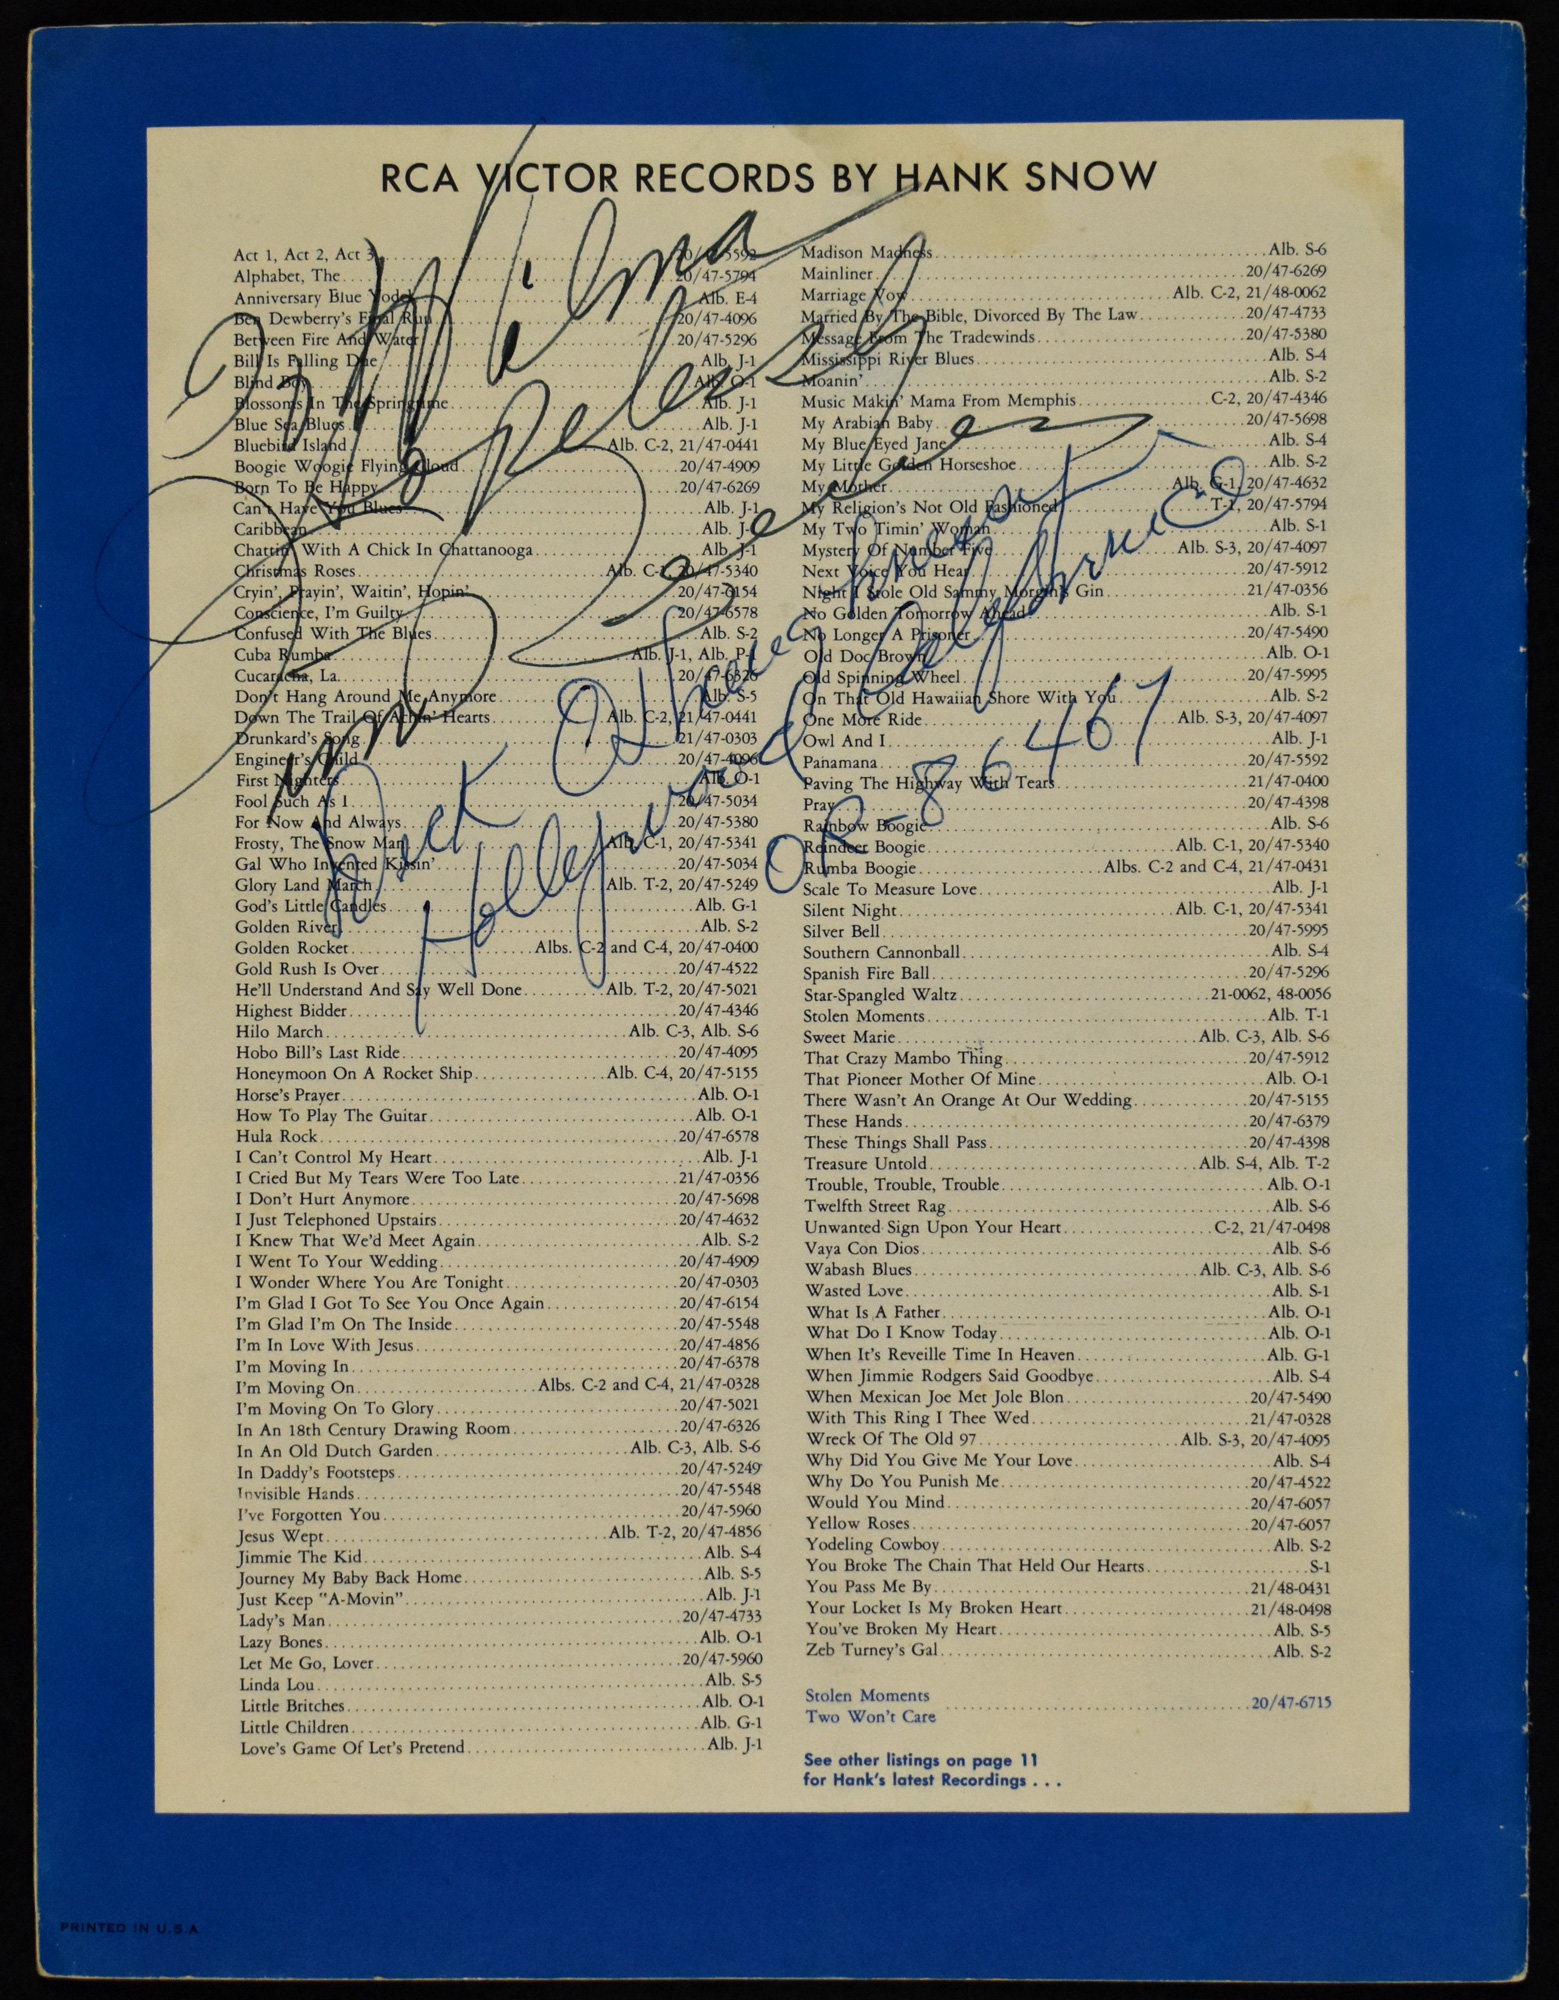 RCA VICTOR RECORDS BY HANK SNOW
Act 1, Act 2, Act 3 20/47-5592
Alphabet, The 20/47-5794
Anniversary Blue Yodel Alb. E-4
Ben Dewberry's Final Run 20/47-4096
Between Fire And Water 20/47-5296
Bill Is Falling Due Alb. J-1
Blind Boy Alb. O-1
Blossoms In The Springtime Alb. J-1
Blue Sea Blues Alb. J-1
Bluebird Island Alb. C-2, 21/47-0441
Boogie Woogie Flying Cloud 20/47-4909
Born To Be Happy 20/47-6269
Can't Have You Blues Alb. J-1
Caribbean Alb. J-1
Chattin' With A Chick In Chattanooga Alb. J-1
Christmas Roses Alb. C-1, 20/47-5340
Cryin', Prayin', Waitin', Hopin' 20/47-6154
Conscience, I'm Guilty 20/47-6578
Confused With The Blues Alb. S-2
Cuba Rumba Alb. J-1, Alb. P-
Cucaracha, La 20/47-6326
Don't Hang Around Me Anymore Alb. S-5
Down The Trail Of Achin' Hearts Alb. C-2, 21/47-0441
Drunkard's Song 21/47-0303
Engineer's Child 20/47-4096
First Nighters Alb. O-1
Fool Such As I 20/47-5034
For Now And Always 20/47-5380
Frosty, The Snow Man Alb. C-1, 20/47-5341
Gal Who Invented Kissin' 20/47-5034
Glory Land March Alb. T-2, 20/47-5249
God's Little Candles Alb. G-1
Golden River Alb. S-2
Golden Rocket Albs. C-2 and C-4, 20/47-0400
Gold Rush Is Over 20/47-4522
He'll Understand And Say Well Done Alb. T-2, 20/47-5021
Highest Bidder 20/47-4346
Hilo March Alb. C-3, Alb. S-6
Hobo Bill's Last Ride 20/47-4095
Honeymoon On A Rocket Ship Alb. C-4, 20/47-5155
Horse's Prayer Alb. O-1
How To Play The Guitar Alb. O-1
Hula Rock 20/47-6578
I Can't Control My Heart Alb. J-1
I Cried But My Tears Were Too Late 21/47-0356
I Don't Hurt Anymore 20/47-5698
I Just Telephoned Upstairs 20/47-4632
I Knew That We'd Meet Again Alb. S-2
I Went To Your Wedding 20/47-4909
I Wonder Where You Are Tonight 20/47-0303
I'm Glad I Got To See You Once Again 20/47-6154
I'm Glad I'm On The Inside 20/47-5548
I'm In Love With Jesus 20/47-4856
I'm Moving In 20/47-6378
I'm Moving On Albs. C-2 and C-4, 21/47-0328
I'm Moving On To Glory 20/47-5021
In An 18th Century Drawing Room 20/47-6326
In An Old Dutch Garden Alb. C-3, Alb. S-6
In Daddy's Footsteps 20/47-5249
Invisible Hands 20/47-5548
I've Forgotten You 20/47-5960
Jesus Wept Alb. T-2, 20/47-4856
Jimmie The Kid Alb. S-4
Journey My Baby Back Home Alb. S-5
Just Keep "A-Movin" Alb. J-1
Lady's Man 20/47-4733
Lazy Bones Alb. O-1
Let Me Go, Lover 20/47-5960
Linda Lou Alb. S-5
Little Britches Alb. O-1
Little Children Alb. G-1
Love's Game Of Let's Pretend Alb. J-1
Madison Madness Alb. S-6
Mainliner 20/47-6269
Marriage Vow Alb. C-2, 21/48-0062
Married By The Bible, Divorced By The Law 20/47-4733
Message From The Tradewinds 20/47-5380
Mississippi River Blues Alb. S-4
Moanin' Alb. S-2
Music Makin' Mama From Memphis C-2, 20/47-4346
My Arabian Baby 20/47-5698
My Blue Eyed Jane Alb. S-4
My Little Golden Horseshoe Alb. S-2
My Mother Alb. G-1, 20/47-4632
My Religion's Not Old Fashioned T-1, 20/47-5794
My Two Timin' Woman Alb. S-1
Mystery Of Number Five Alb. S-3, 20/47-4097
Next Voice You Hear 20/47-5912
Night I Stole Old Sammy Morgan's Gin 21/47-0356
No Golden Tomorrow Ahead Alb. S-1
No Longer A Prisoner 20/47-5490
Old Doc Brown Alb. O-1
Old Spinning Wheel 20/47-5995
On That Old Hawaiian Shore With You Alb. S-2
One More Ride Alb. S-3, 20/47-4097
Owl And I Alb. J-1
Panamana 20/47-5592
Paving The Highway With Tears 21/47-0400
Pray 20/47-4398
Rainbow Boogie Alb. S-6
Reindeer Boogie Alb. C-1, 20/47-5340
Rumba Boogie Albs. C-2 and C-4, 21/47-0431
Scale To Measure Love Alb. J-1
Silent Night Alb. C-1, 20/47-5341
Silver Bell 20/47-5995
Southern Cannonball Alb. S-4
Spanish Fire Ball 20/47-5296
Star-Spangled Waltz 21-0062, 48-0056
Stolen Moments Alb. T-1
Sweet Marie Alb. C-3, Alb. S-6
That Crazy Mambo Thing 20/47-5912
That Pioneer Mother Of Mine Alb. O-1
There Wasn't An Orange At Our Wedding 20/47-5155
These Hands 20/47-6379
These Things Shall Pass 20/47-4398
Treasure Untold Alb. S-4, Alb. T-2
Trouble, Trouble, Trouble Alb. O-1
Twelfth Street Rag Alb. S-6
Unwanted Sign Upon Your Heart C-2, 21/47-0498
Vaya Con Dios Alb. S-6
Wabash Blues Alb. C-3, Alb. S-6
Wasted Love Alb. S-1
What Is A Father Alb. O-1
What Do I Know Today Alb. O-1
When It's Reveille Time In Heaven Alb. G-1
When Jimmie Rodgers Said Goodbye Alb. S-4
When Mexican Joe Met Jole Blon 20/47-5490
With This Ring I Thee Wed 21/47-0328
Wreck Of The Old 97 Alb. S-3, 20/47-4095
Why Did You Give Me Your Love Alb. S-4
Why Do You Punish Me 20/47-4522
Would You Mind 20/47-6057
Yellow Roses 20/47-6057
Yodeling Cowboy Alb. S-2
You Broke The Chain That Held Our Hearts S-1
You Pass Me By 21/48-0431
Your Locket Is My Broken Heart 21/48-0498
You've Broken My Heart Alb. S-5
Zeb Turney's Gal Alb. S-2
Stolen Moments
Two Won't Care 20/47-6715
See other listings on page 11
for Hank's latest Recordings . . .
To Wilma
Dick
Hollywood California
OR-86467
PRINTED IN U.S.A